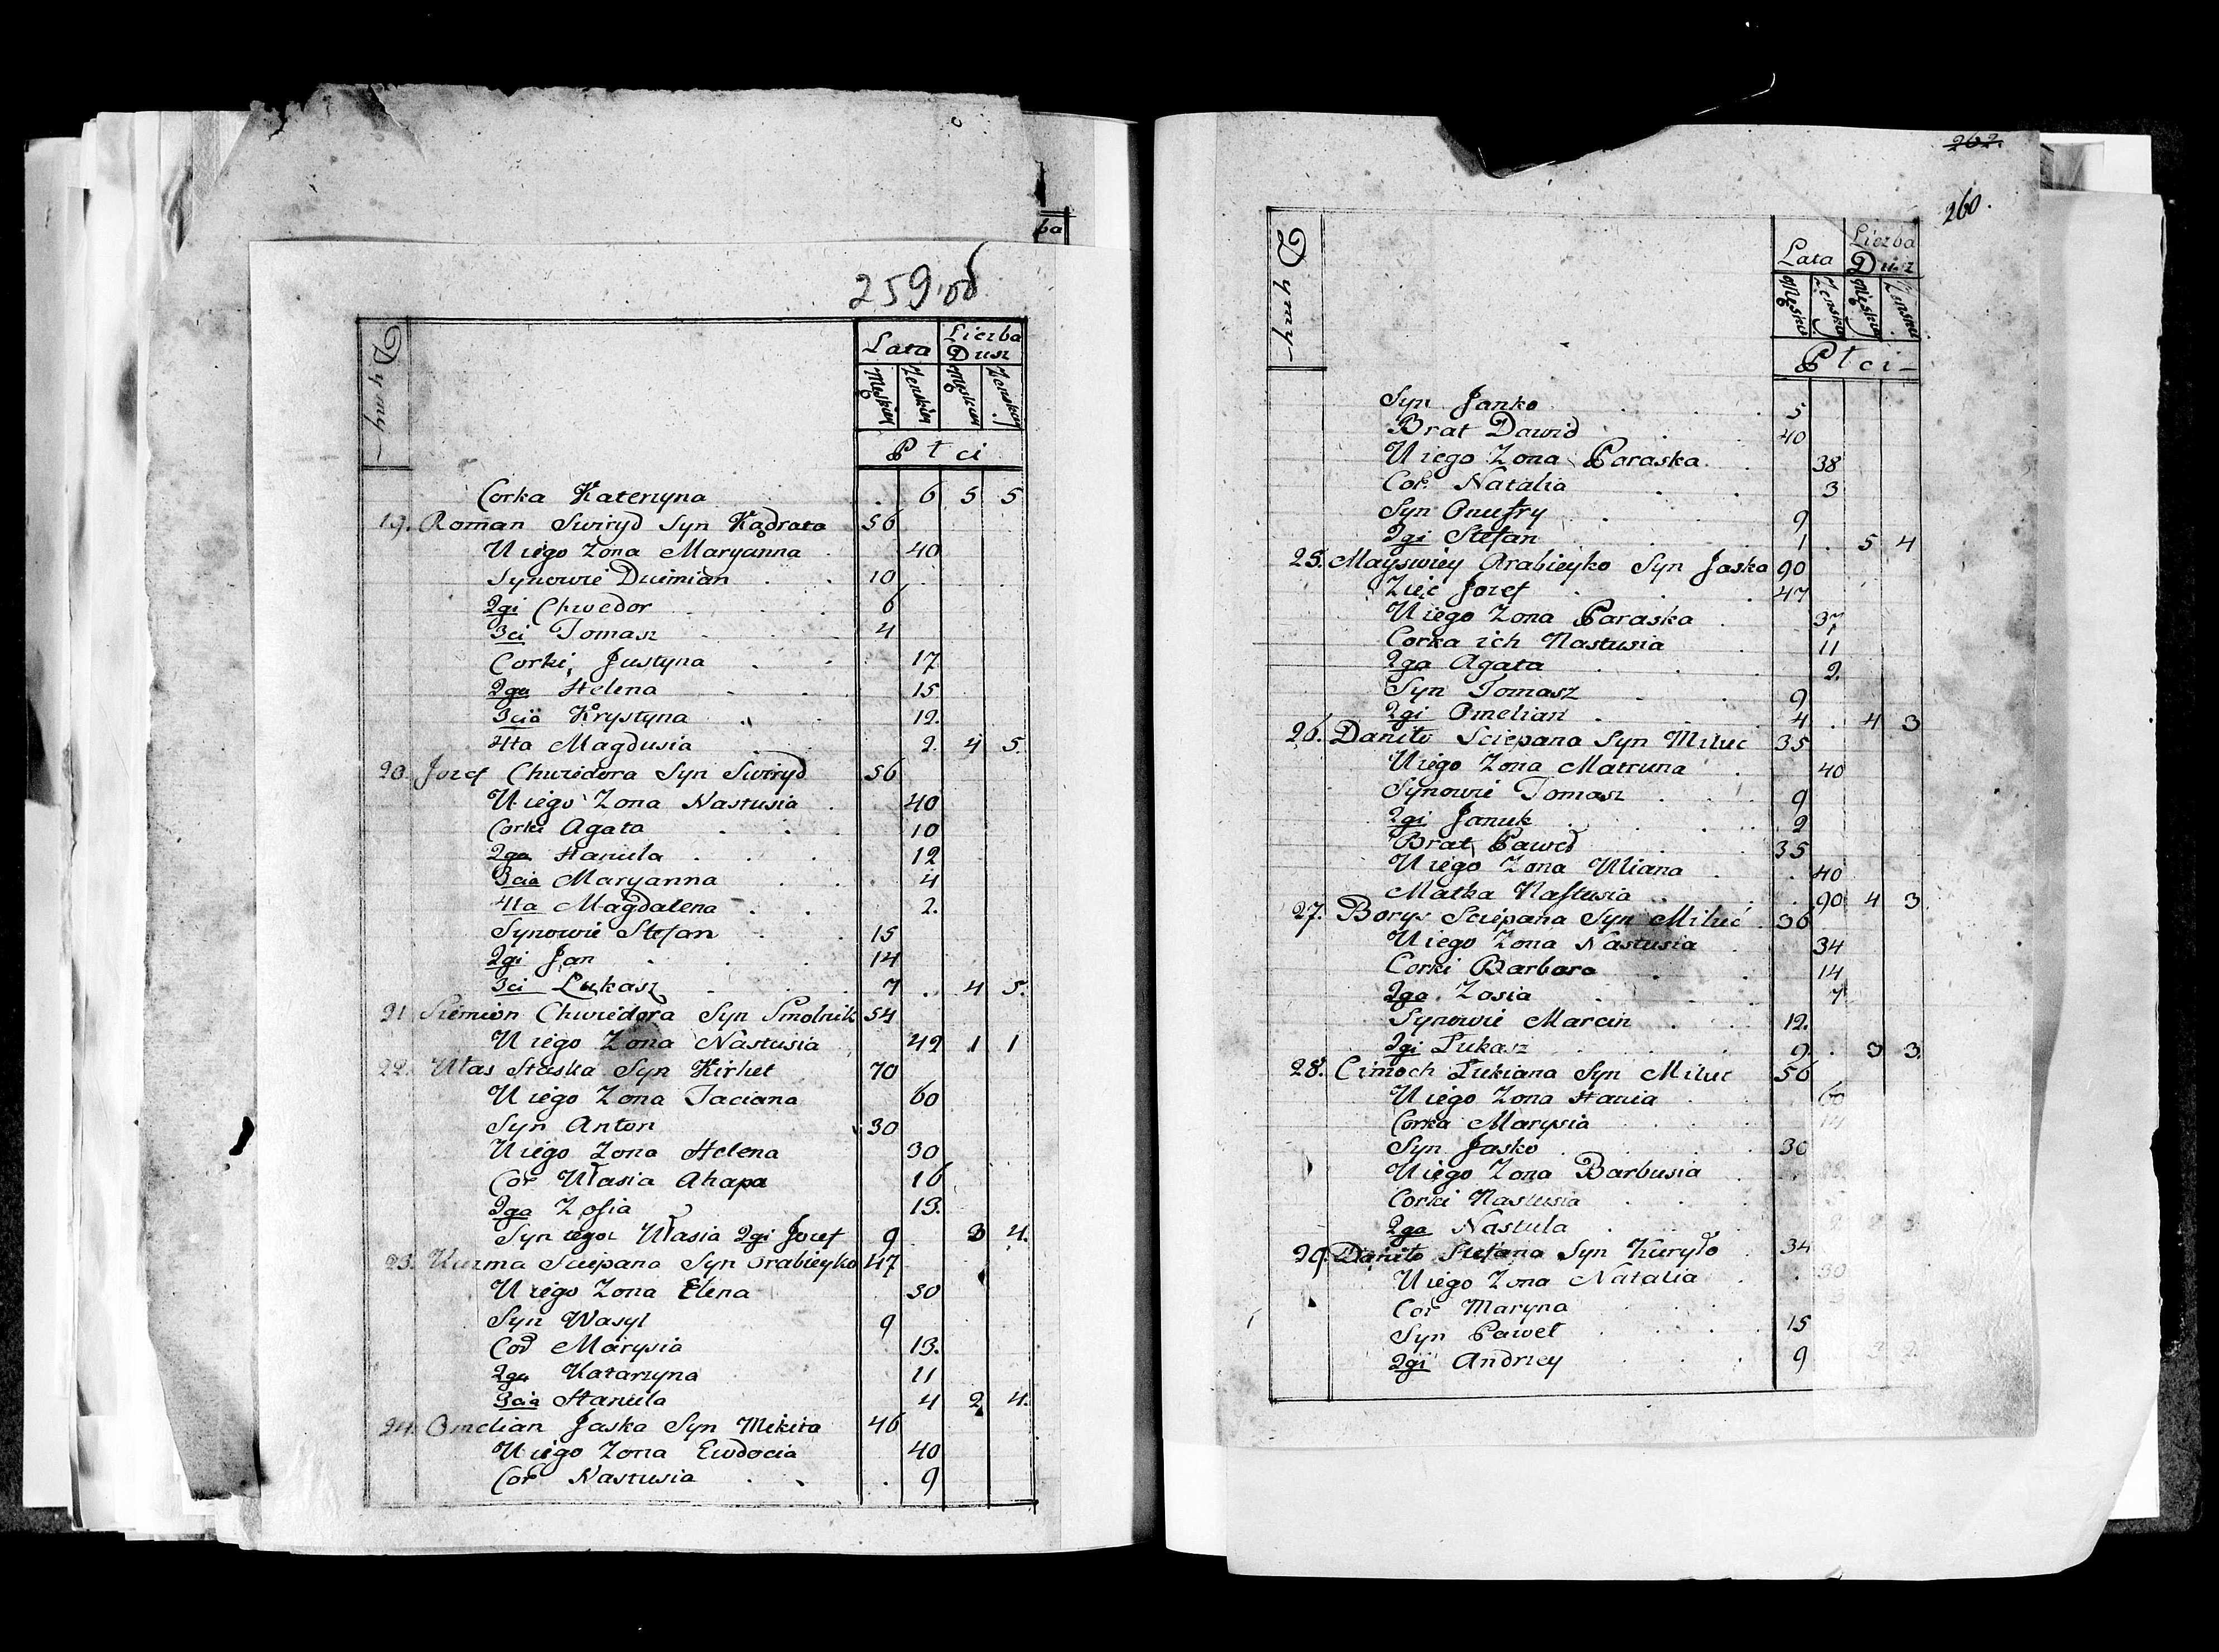 259 об
Dymy
Lata Liczba Dusz
Męskiey Żenskiey Męskiey Żenskiey
Płci
Corka Katerzyna . 6 5 5
19. Roman Swiryd Syn Kądrata 56
U iego Zona Maryanna 40
Synowie Dziemian 10
2gi Chwedor 6
3ci Tomasz 4
Corki, Justyna 17
2ga Helena 15
3cia Krystyna 12.
4ta Magdusia 2. 4 5.
20. Jozef Chwiedora Syn Swiryd 56
U iego Zona Nastusia 40
Corki Agata 10
2ga Hanula 12
3cia Maryanna 4
4ta Magdalena 2.
Synowie Stefan 15
2gi Jan 14
3ci Łukasz 7 . 4 5.
21. Siemion Chwiedora Syn Smolnik 54
U iego Zona Nastusia 42 1 1
22. Ułas Staska Syn Kirhet 70
U iego Zona Taciana 60
Syn Anton 30
U iego Zona Helena 30
Cor Ułasia Ahapa 16
2ga Zofia 13.
Syn tegoż Ułasia 2gi Jozef 9 3 4.
23. Kuzma Sciepana Syn Arabieyko 47
U iego Zona Elena 30
Syn Wasyl 9
Cor Marysia 13.
2ga Katarzyna 11
3cia Hanula 4 2 4.
24. Omelian Jaska Syn Mikita 46
U iego Zona Ewdocia 40
Cor Nastusia 9
262.
260.
Dymy
Lata Liczba Dusz
Męskiey Żenskiey Męskiey Żenskiey
Płci
Syn Janko 5
Brat Dawid 40
U iego Zona Paraska 38
Cor. Natalia 3
Syn Onufry 9
2gi Stefan 1 . 5 4
25. Mayswiey Arabieyko Syn Jaska 90
Zięć Jozef 47
U iego Zona Paraska 37
Corka ich Nastusia 11
2ga Agata 2.
Syn Tomasz 9
2gi Omelian 4 . 4 3
26. Daniło Sciepana Syn Miluć 35
U iego Zona Matruna 40
Synowie Tomasz 9
2gi Januk 2
Brat Paweł 35
U iego Zona Uliana 40
Matka Nastusia 90 4 3.
27. Borys Sciepana Syn Miluć 36
U iego Zona Nastusia 34
Corki Barbara 14
2ga Zosia 7
Synowie Marcin 12.
2gi Łukasz 9. . 3 3.
28. Cimoch Łukiana Syn Miluć 56
U iego Zona Hania 60
Corka Marysia 14
Syn Jasko 30
U iego Zona Barbusia
Corki Nastusia
2ga Nastula
29. Daniło Stefana Syn Kuryło 34
U iego Zona Natalia 30
Cor Maryna
Syn Paweł 15
2gi Andrzey 9